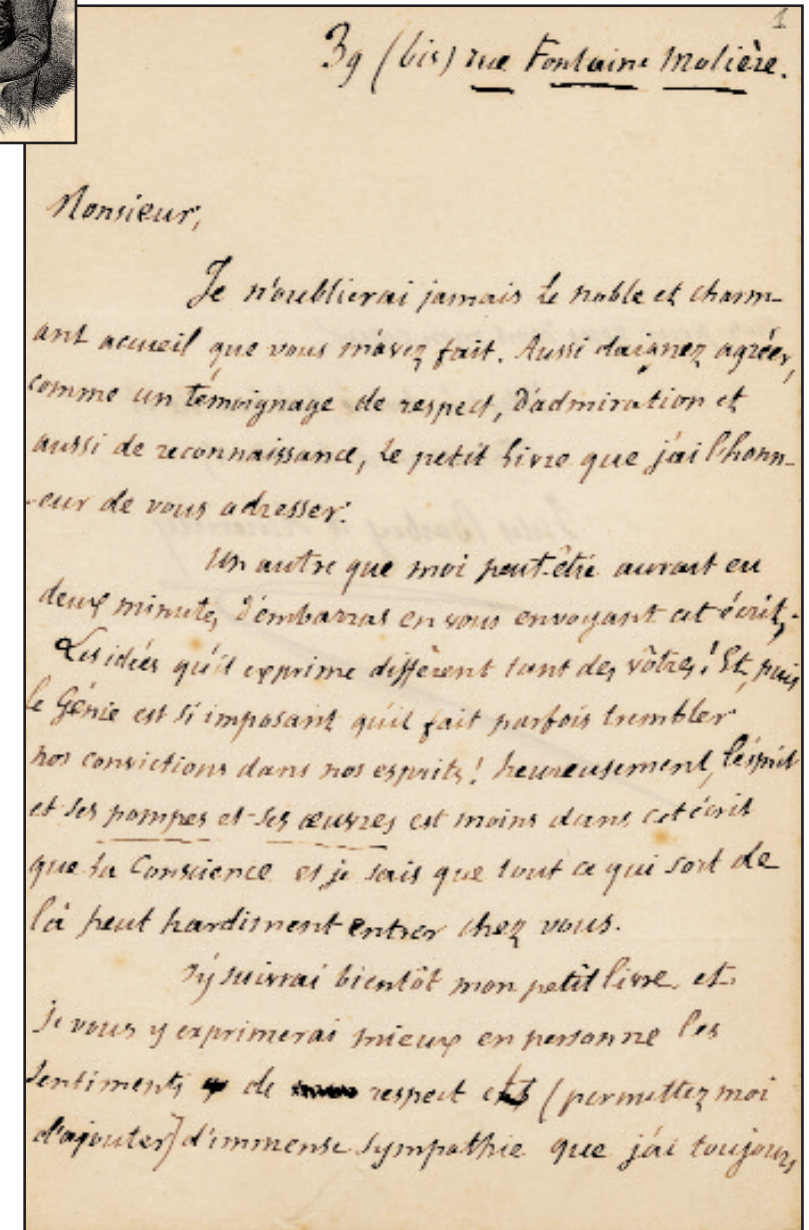 1
39 (bis) rue Fontaine Molière.
Monsieur,
Je n'oublierai jamais le noble et charm-
ant accueil que vous m'avez fait. Aussi daignez agréer,
comme un témoignage de respect, d'admiration et
aussi de reconnaissance, le petit livre que j'ai l'honn-
-eur de vous adresser.
Un autre que moi peut-être aurait eu
deux minutes d'embarras en vous envoyant cet écrit,
Les idées qu'il exprime diffèrent tant des vôtres! Et, puis
le Génie est si imposant qu'il fait parfois trembler
nos convictions dans nos esprits! heureusement, l'esprit
et ses pompes et ses œuvres est moins dans cet écrit
que la Conscience et je sais que tout ce qui sort de
là peut hardiment entrer chez vous.
J'y suivrai bientôt mon petit livre et
je vous y exprimerai mieux en personne les
sentiments de respect et (permettez moi
d'ajouter) d'immense sympathie que j'ai toujours